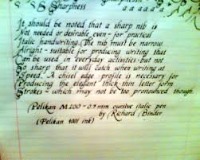 Sharpness a a a a a
It should be noted that a sharp nib is
not needed or desirable, even - for practical
Italic handwriting. The nib must be narrow
- suitable for producing writing that
Can be used in everyday activities but not
so sharp that it will catch when writing at
Speed. A chisel edge profile is necessary for
Producing the elegant thick thin letter form
Strokes - which may not be too pronounced though.
(Pelikan M200 - 0.9 mm cursive italic pen
by Richard Binder
(Pelikan 4001 ink)